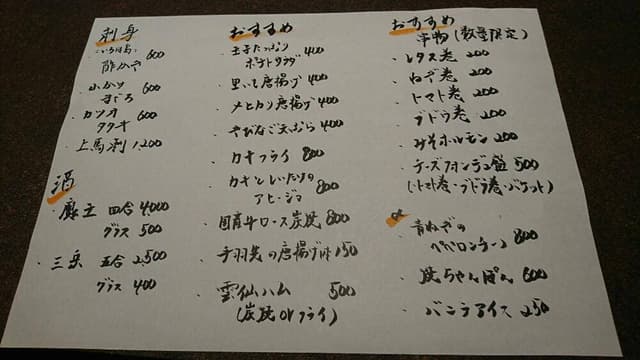 刺身
酢かき 600
まぐろ 600
カツオ
タタキ 600
上馬刺 1,200
酒
四合 4,000
グラス 500
三岳 五合 2,500
グラス 400
おすすめ
玉子たっぷり
ポテトサラダ 400
里いも唐揚げ 400
メヒカリ唐揚げ 400
天ぷら 400
カキフライ 800
カキとしいたけの
アヒージョ 800
国産牛ロース炭焼 800
手羽先の唐揚げ 150
雲仙ハム 500
(炭焼 or フライ)
おすすめ
串物(数量限定)
レタス巻 200
ねぎ巻 200
トマト巻 200
ブドウ巻 200
みそホルモン 200
チーズフォンデュ 500
(トマト巻・ブドウ巻・バケット)
青ねぎの
ペペロンチーノ 800
ちゃんぽん 600
バニラアイス 250